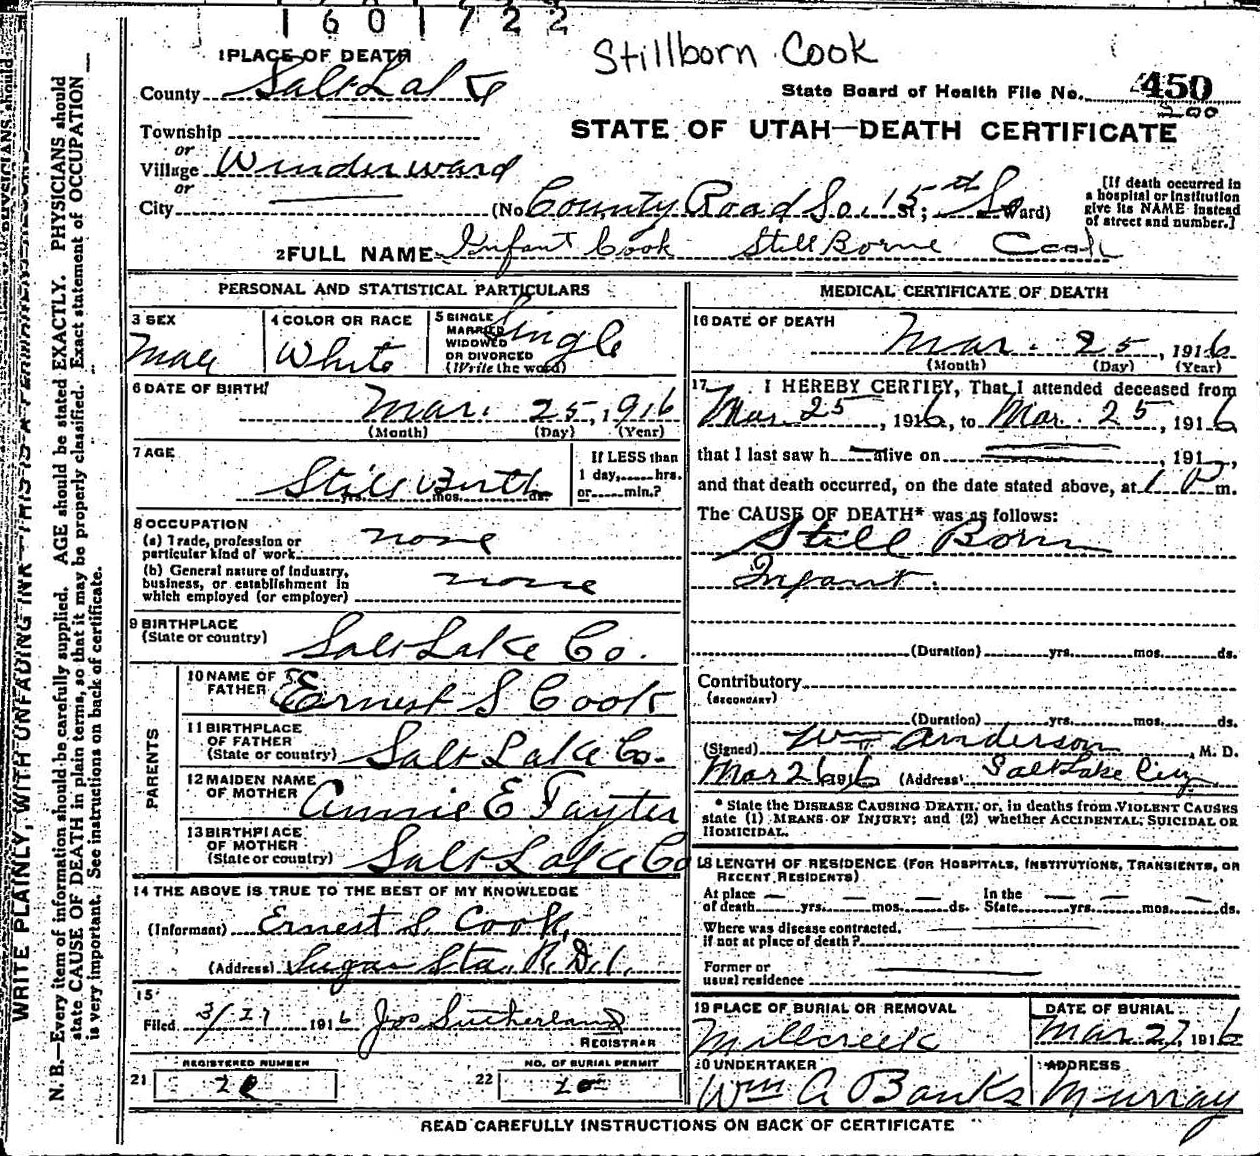 1601722
Stillborn Cook
1 PLACE OF DEATH
County Salt Lake
State Board of Health File No. 450
200
STATE OF UTAH—DEATH CERTIFICATE
Township
or
Village Winder ward
or
City
(No. County Road So. 15th St; So Ward)
[If death occurred in
a hospital or institution
give its NAME instead
of street and number.]
2 FULL NAME Infant Cook Still Borne Cook
PERSONAL AND STATISTICAL PARTICULARS
3 SEX
4 COLOR OR RACE White
5 SINGLE
MARRIED
WIDOWED
OR DIVORCED
(Write the word)
Single
6 DATE OF BIRTH
Mar. 25, 1916
(Month) (Day) (Year)
7 AGE
Still Birth
yrs. mos. ds.
If LESS than
1 day,......hrs.
or......min.?
8 OCCUPATION
(a) Trade, profession or
particular kind of work none
(b) General nature of industry,
business, or establishment in
which employed (or employer) none
9 BIRTHPLACE
(State or country) Salt Lake Co.
PARENTS
10 NAME OF
FATHER Ernest S Cook
11 BIRTHPLACE
OF FATHER
(State or country) Salt Lake Co.
12 MAIDEN NAME
OF MOTHER Annie E Tayter
13 BIRTHPLACE
OF MOTHER
(State or country) Salt Lake Co
14 THE ABOVE IS TRUE TO THE BEST OF MY KNOWLEDGE
(Informant) Ernest S. Cook,
(Address) Sugar Sta., R.D.1.
15
Filed 3/27 1916 Jos Sutherland
REGISTRAR
REGISTERED NUMBER
21
NO. OF BURIAL PERMIT
22 20
MEDICAL CERTIFICATE OF DEATH
16 DATE OF DEATH
Mar. 25, 1916
(Month) (Day) (Year)
17 I HEREBY CERTIFY, That I attended deceased from
Mar. 25, 1916, to Mar. 25, 1916
that I last saw h alive on , 191 ,
and that death occurred, on the date stated above, at 1 P m.
The CAUSE OF DEATH* was as follows:
Still Born
Infant.
(Duration) yrs. mos. ds.
Contributory
(SECONDARY)
(Duration) yrs. mos. ds.
(Signed) Wm Anderson, M. D.
Mar 26 1916 (Address) Salt Lake City
* State the DISEASE CAUSING DEATH, or, in deaths from VIOLENT CAUSES
state (1) MEANS OF INJURY; and (2) whether ACCIDENTAL, SUICIDAL OR
HOMICIDAL.
18 LENGTH OF RESIDENCE (FOR HOSPITALS, INSTITUTIONS, TRANSIENTS, OR
RECENT RESIDENTS)
At place In the
of death yrs. mos. ds. State yrs. mos. ds.
Where was disease contracted,
if not at place of death?
Former or
usual residence
19 PLACE OF BURIAL OR REMOVAL
Millcreek
DATE OF BURIAL
Mar. 27, 1916
20 UNDERTAKER
Wm A Banks
ADDRESS
Murray
READ CAREFULLY INSTRUCTIONS ON BACK OF CERTIFICATE
N. B.—Every item of information should be carefully supplied. AGE should be stated EXACTLY. PHYSICIANS should
state CAUSE OF DEATH in plain terms, so that it may be properly classified. Exact statement of OCCUPATION
is very important. See instructions on back of certificate.
WRITE PLAINLY, WITH UNFADING INK—THIS IS A PERMANENT
PHYSICIANS should